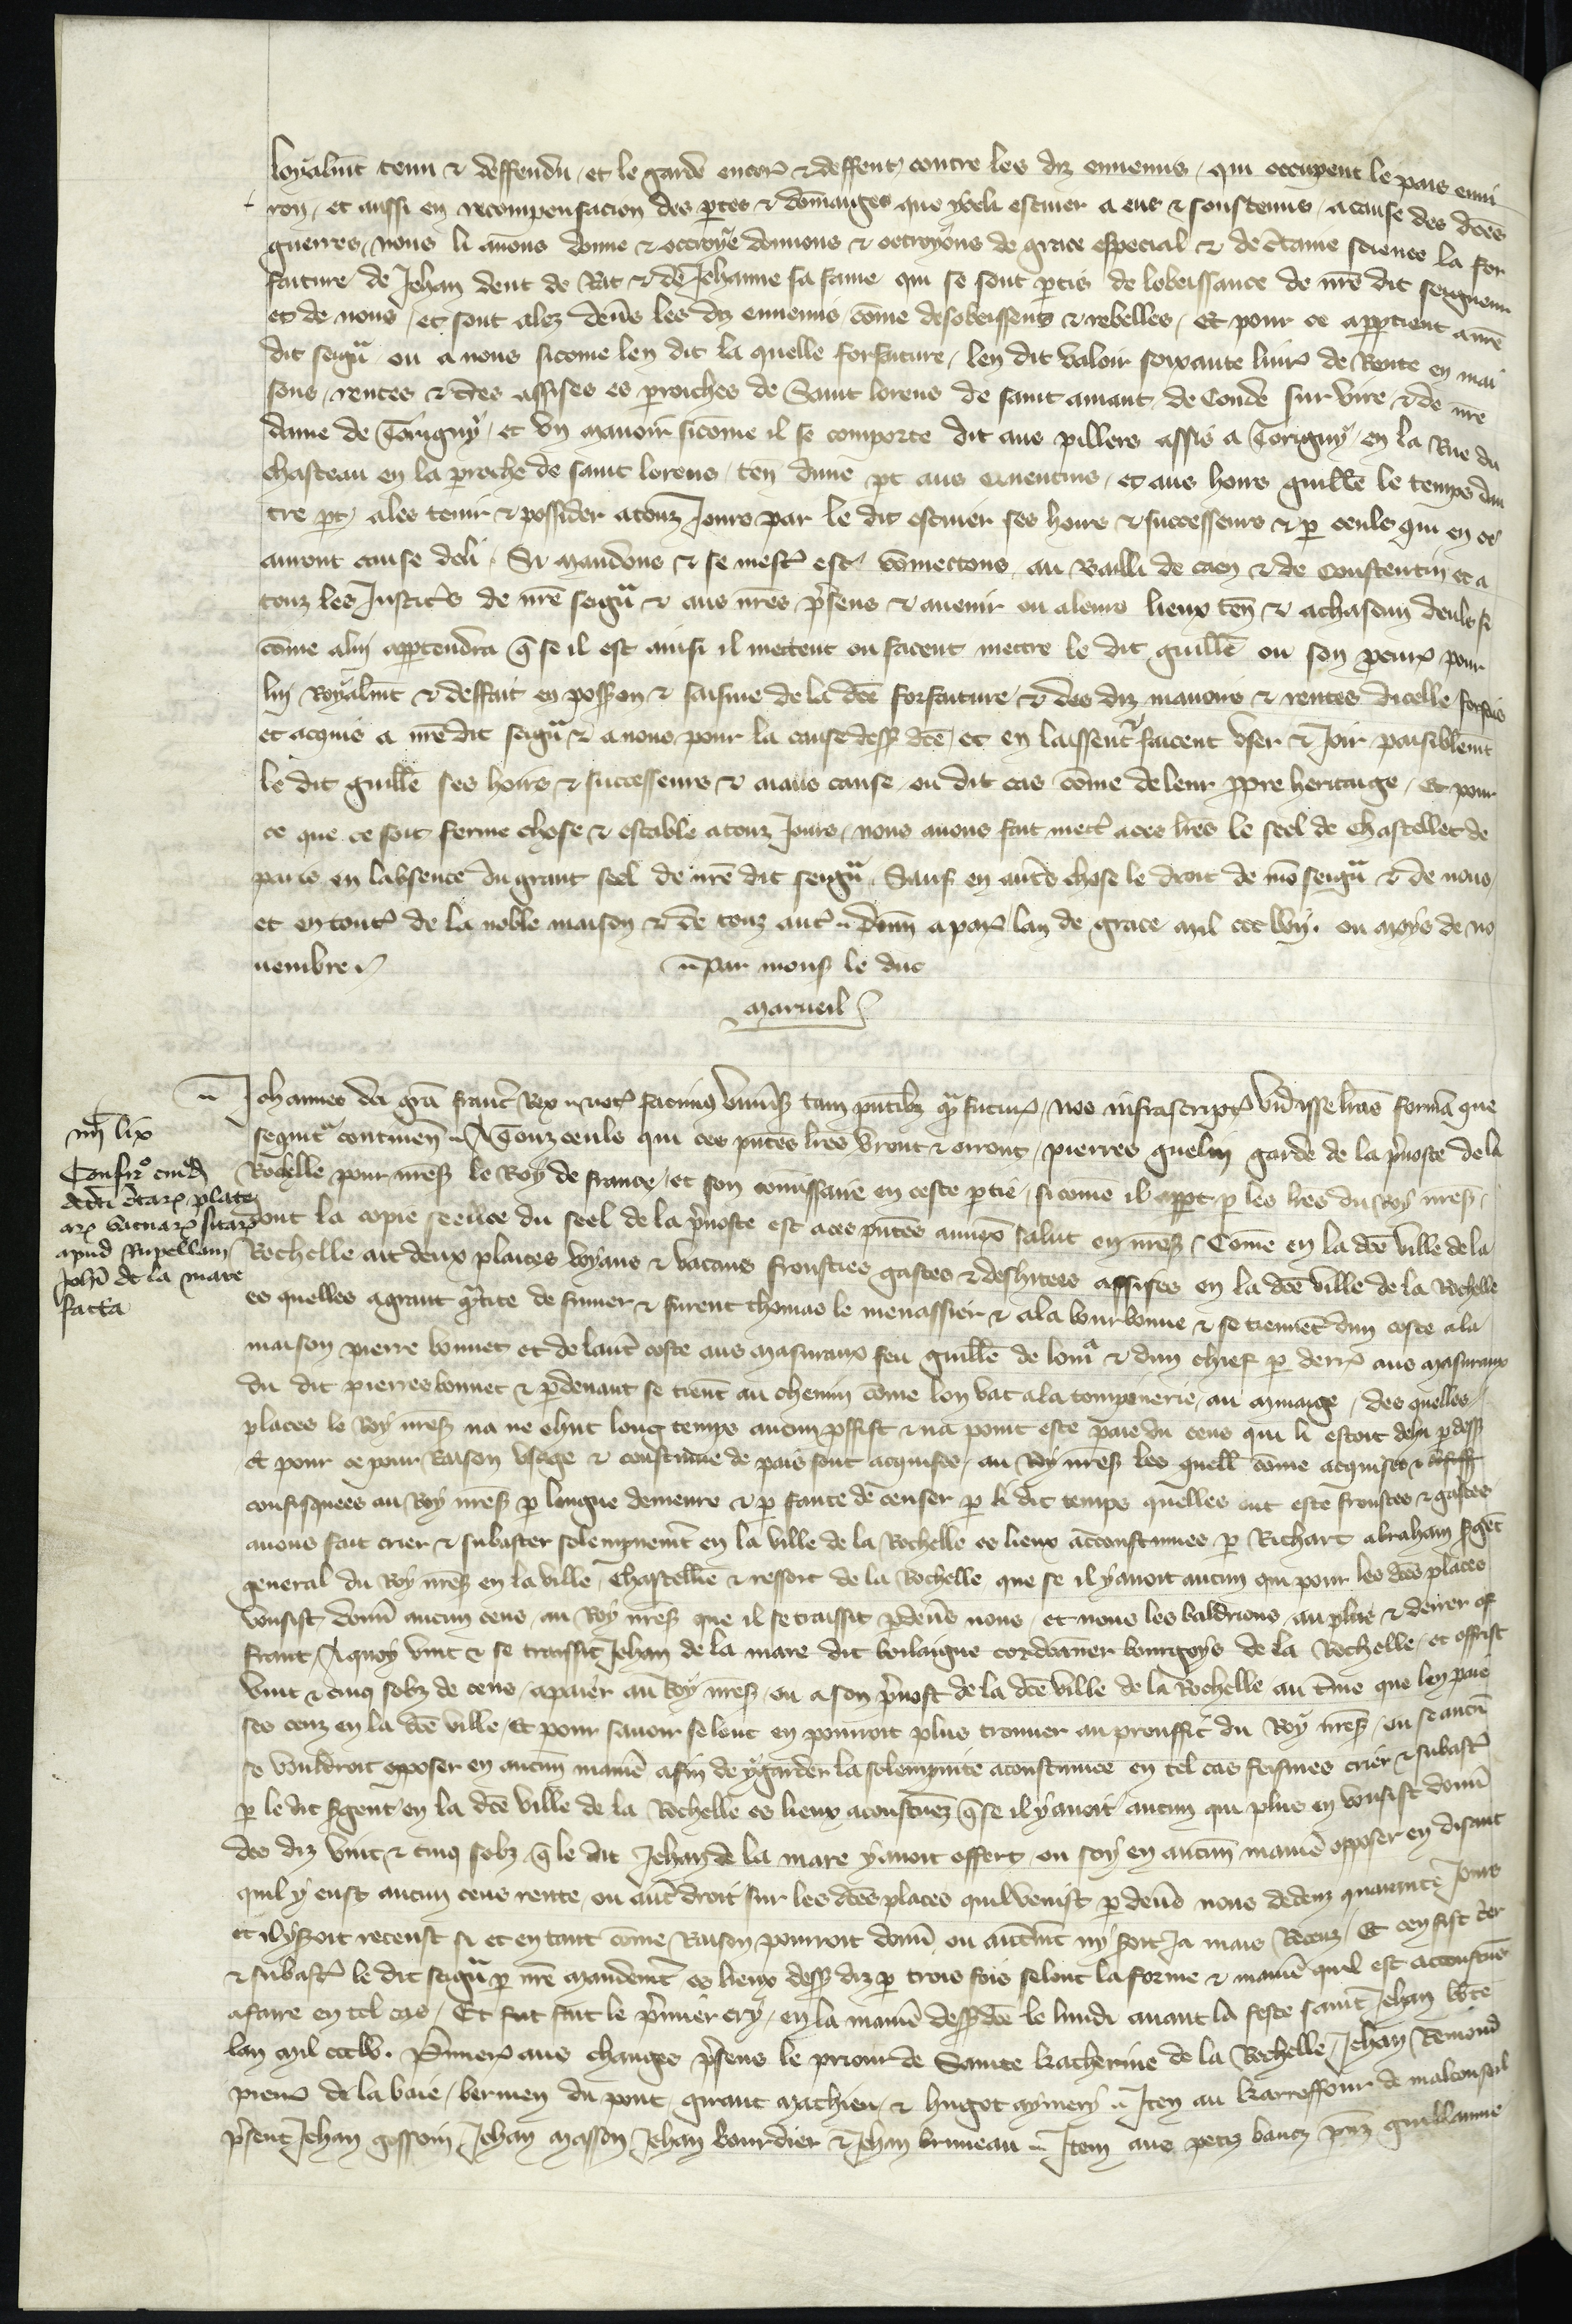 loyalmt tenu & deffendu et le garde encor & deffent contre les diz ennemis qui occupent le pais envi
ron et aussi en recompensacion des ptes & dommaiges que ycelli escuier a eus & soustenus a cause des dces
guerres nous li avons donne & octroye donnons & octroyons de grace especial & de ctaine science la for
faiture de Jehan dent de Rat & de Jehanne sa fame qui se sont ptis de lobeissance de nre dit seigneur
et de nous et sont alez devs les diz ennemis come desobeissens & rebelles Et pour ce appartient a nre
dit seigr ou a nous sicome len dit la quelle forfaiture len dit valoir soixante livr de Rente en mai
sons rentes & tres assises es proiches de Saint lorens de saint amant de Conde sur vire & de nre
dame de Torigny et un manoir sicome il se comporte dit aus pillers assis a Torigny en la Rue du
chasteau en la proche de saint lorens ten dune pt aus quentins et aus hoirs guille le temps dau
tre pt a les tenir & possider a touz Jours par le dit escuier ses hoirs & successeurs & p ceuls qui en ce
auront cause de li Si mandons & se mest est commectons au Bailli de caen & de Constentin et a
touz les Justic's de nre seigr & aus nres psens & avenir ou a leurs lieux ten & a chascun deuls si
come a luy appartendra q se il est ainsi il mettent ou facent mettre le dit guille ou son pcur pour
luy Royalmt & deffait en possion & saisine de la dce forfaiture & des diz manoirs & rentes dicelle forfais
et acquis a nre dit seigr & a nous pour la cause dess dce et en laissent & facent user & Joir paisiblemt
le dit guille ses hoirs & successeurs & aians cause ou dit cas come de leur ppre heritaige Et pour
ce que ce soit ferme chose & estable a touz Jours nous avons fait mect a ces lres le seel de Chastellet de
paris en labsence du grant seel de nre dit seigr Sauf en autres chose le droit de mo seigr & de nous
et en tout de la noble maison & de touz aut Donn a par lan de grace mil ccc lviij. ou moys de no
vembre
Par mons le duc
Marueil
Johannes dei gra franc Rex not facimus univsis tam pntibz q futur nos infrascript vidisse lras forma que
sequit continen A Touz ceuls qui ces pntes lres vront & orront pierres guelin garde de la pvoste de la
Rochelle pour nres le Roy de france et son comissaire en ceste ptie sicome il appt p les lres du Roy nres
dont la copie seellee du seel de la pvoste est a ces pntes annex salut en nres Come en la dce ville de la
Rochelle ait deux places voyans & vacans frousties gastes & deshitees assises en la dce ville de la Rochelle
es quelles a grant qtite de fumer & furent thomas le menassier & a la bourbonne & se tiennet dun coste a la
maison pierre bonnet et de laut coste aus masuraux feu guille de lom & dun chief p derr aus masuraux
du dit pierres bonnet & p devant se tient au chemin come lon vat a la tompinerie au mmaige des quelles
places le Roy nres na ne ehut long temps aucun pffist & na point este paie du cens qui li estoit dehu p dess
Et pour ce pour Raison Usage & coustume de pais sont acquises au Roy nres les quell come acquises &
confisquees au Roy nres p longue demeure & p faute de censer p li dit temps quelles ont este froustes & gastes
avons fait crier & subaster solempnemt en la ville de la Rochelle es lieux accoustumes p Richart abraham sgent
general du Roy nres en la ville Chastellie & ressort de la Rochelle que se il y avoit aucun qui pour les dces places
vousist donn aucun cens au Roy nres que il se traissit p devs nous et nous les baldrions au plus & derrer of
frant A quoy vint & se traissit Jehan de la mare dit boilaigue cordoanner bourgoys de la Rochelle et offrist
vint & cinq solz de cens a paier au Roy nres ou a son pvost de la dce ville de la Rochelle au tme que len paie
ses cenz en la dce ville Et pour savoir se lont en pourroit plus trouver au prouffit du Roy nres ou se aucun
se vouldroit opposer en aucun manie afin de y garder la solempnite acoustumee en tel cas feismes crier & subast
p le dit sgent en la dce ville de la Rochelle es lieux acoustuez q se il y avoit aucun qui plus en vousist donn
des diz vint & cinq solz q le dit Jehan de la mare y avoit offert ou soy en aucun manie opposer en disant
quil y eust aucun cens rente ou aut droit sur les dces places quil venist p devs nous dedenz quarante Jours
et il y soit receust si et en tant come Raison pourroit donn ou autmt ny soit Ja mais Receuz Et cen fist crier
& subast le dit seigr p nre mandemt es lieux dess diz p trois fois selont la forme & manie quil est accoustue
a faire en tel cas Et fut fait le pmier cry en la manie dess dce le lundi avant la feste saint Jehan bte
lan mil ccc lv. Pmier aus changes psens le priour de Sainte katherine de la Rochelle Jehan Remond
pierres de la baie bermen du pont giraut mathieu & hugot aymery Item au karreffour de malconseil
psent Jehan gossoin Jehan masson Jehan bourdier & Jehan bruneau Item aus petiz bancz pnz guillaume
iiij lix
Confir cuiusd
dcti ctar plate
ar vacuar sitar
apud Rupellam
Johi de la mare
facta